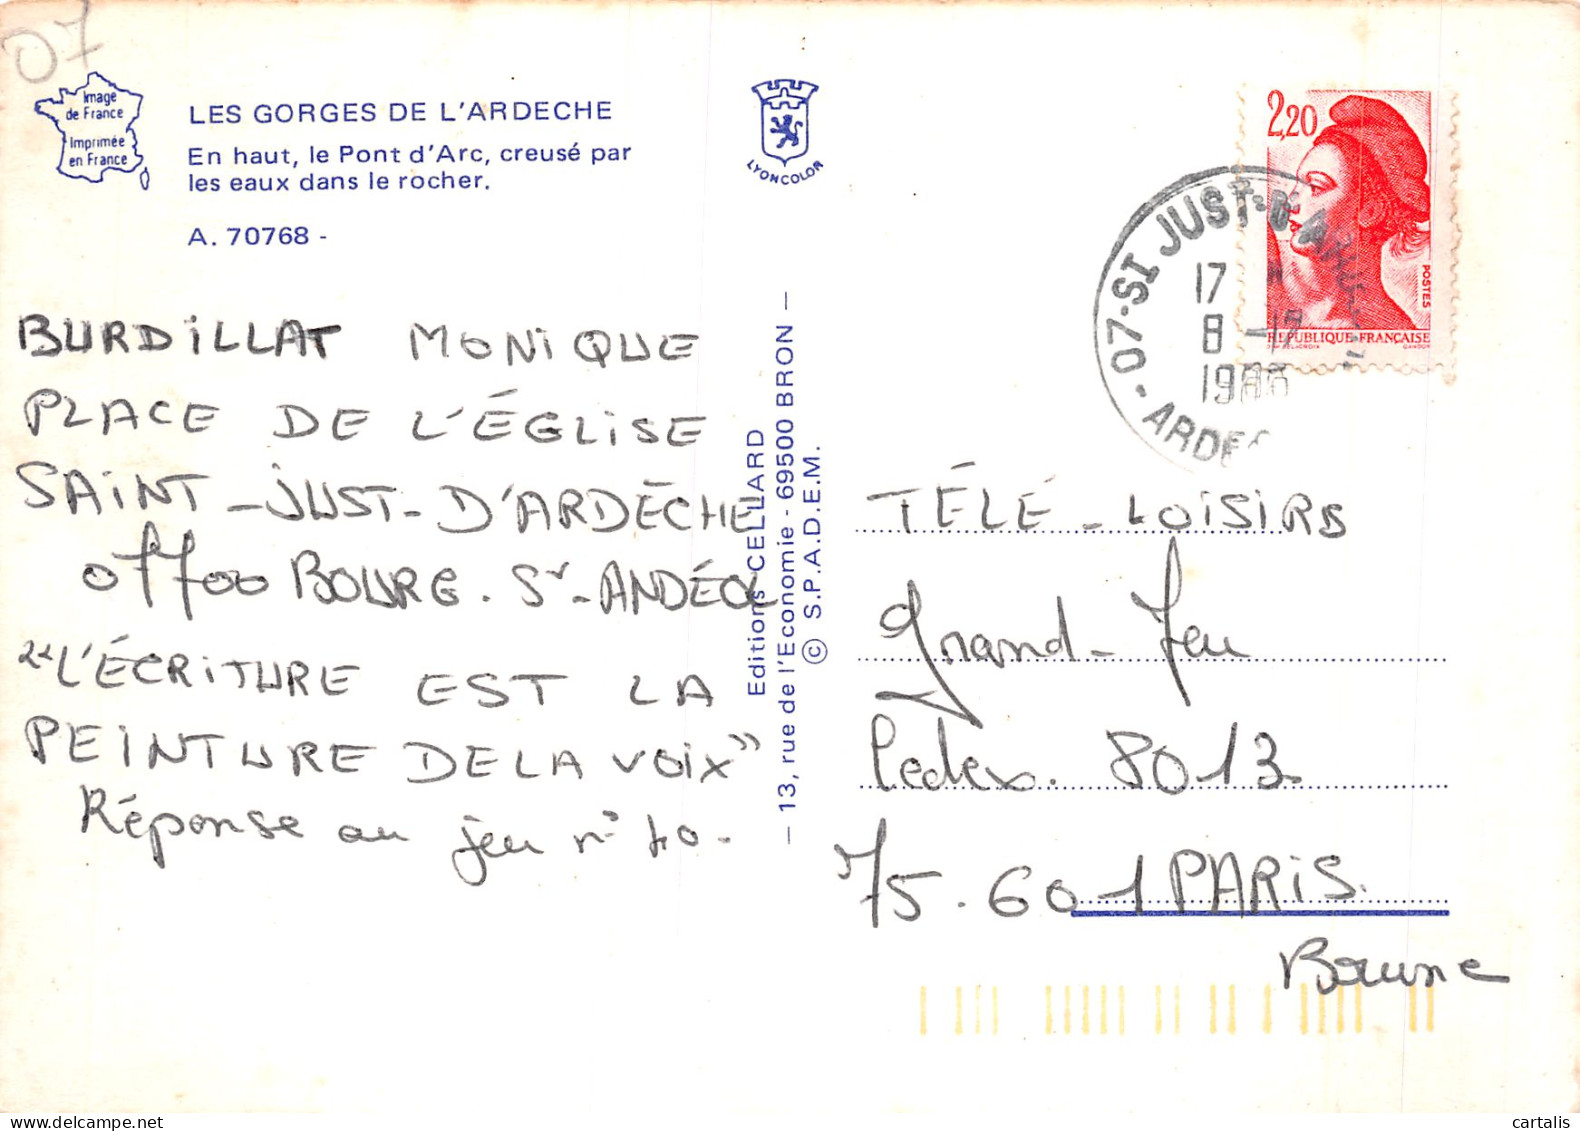 07
Image
de France
Imprimée
en France
LES GORGES DE L'ARDECHE
En haut, le Pont d'Arc, creusé par
les eaux dans le rocher.
A. 70768 -
LYONCOLOR
2,20
POSTES
REPUBLIQUE FRANÇAISE
07-ST JUST-D'
ARDE
17
8 -12
BURDILLAT MONIQUE
PLACE DE L'ÉGLISE
SAINT-JUST-D'ARDÈCHE
07700 BOURG. St-ANDÉOL
"L'ÉCRITURE EST LA
PEINTURE DE LA VOIX"
Réponse au jeu n° 40.
Editions CELLARD
— 13, rue de l'Economie - 69500 BRON —
© S.P.A.D.E.M.
TÉLÉ-LOISIRS
Grand-Jeu
Cedex. 8013
75.601 PARIS.
cartalis